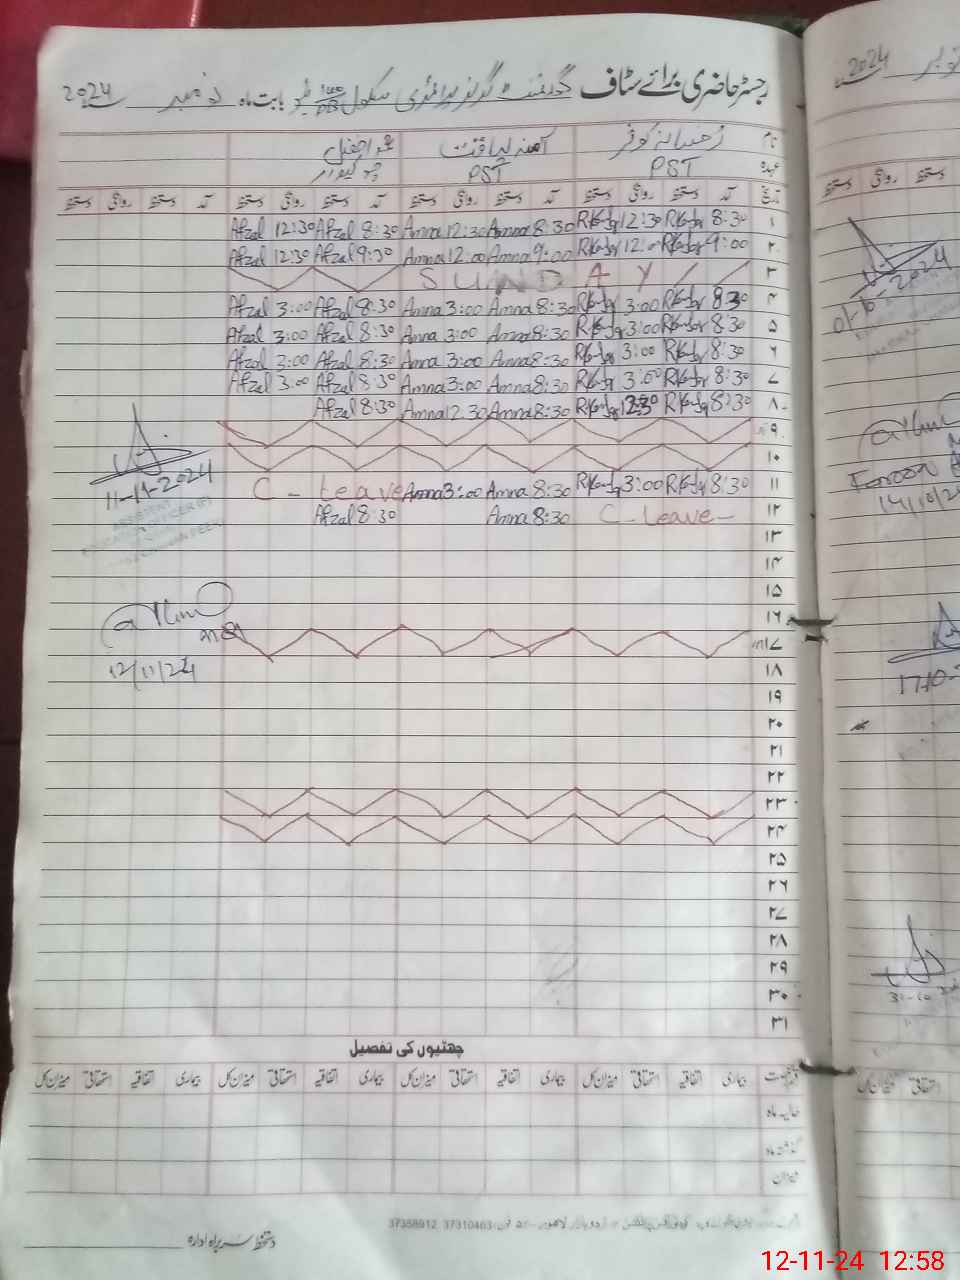 رجسٹر حاضری برائے سٹاف گورنمنٹ گرلز پرائمری سکول بابت ماہ نومبر 2024
نام
عہدہ PST PST چوکیدار
تاریخ آمد دستخط روانگی دستخط آمد دستخط روانگی دستخط آمد دستخط روانگی دستخط آمد دستخط روانگی دستخط
۱ 8:30 12:30 Amna 8:30 Amna 12:30 Afzal 8:30 Afzal 12:30
۲ 9:00 Amna 9:00 Amna 12:00 Afzal 9:30 Afzal 12:30
۳ SUNDAY
۴ 8:30 3:00 Amna 8:30 Amna 3:00 Afzal 8:30 Afzal 3:00
۵ 8:30 3:00 Amna 8:30 Amna 3:00 Afzal 8:30 Afzal 3:00
۶ 8:30 3:00 Amna 8:30 Amna 3:00 Afzal 8:30 Afzal 3:00
۷ 8:30 3:00 Amna 8:30 Amna 3:00 Afzal 8:30 Afzal 3:00
۸ 8:30 12:30 Amna 8:30 Amna 12:30 Afzal 8:30
۹
۱۰
۱۱ 8:30 3:00 Amna 8:30 Amna 3:00 C - Leave
11-11-2024
۱۲ C - Leave - Amna 8:30 Afzal 8:30
۱۳
۱۴
۱۵
۱۶
۱۷
12/11/24
۱۸
۱۹
۲۰
۲۱
۲۲
۲۳
۲۴
۲۵
۲۶
۲۷
۲۸
۲۹
۳۰
۳۱
چھٹیوں کی تفصیل
بیماری اتفاقیہ استحقاقی میزان کل بیماری اتفاقیہ استحقاقی میزان کل بیماری اتفاقیہ استحقاقی میزان کل بیماری اتفاقیہ استحقاقی میزان کل
حالیہ ماہ
گذشتہ ماہ
میزان
37310463 37358912
دستخط سربراہ ادارہ
2024
01-10-2024
17-10-
31-10
12-11-24 12:58